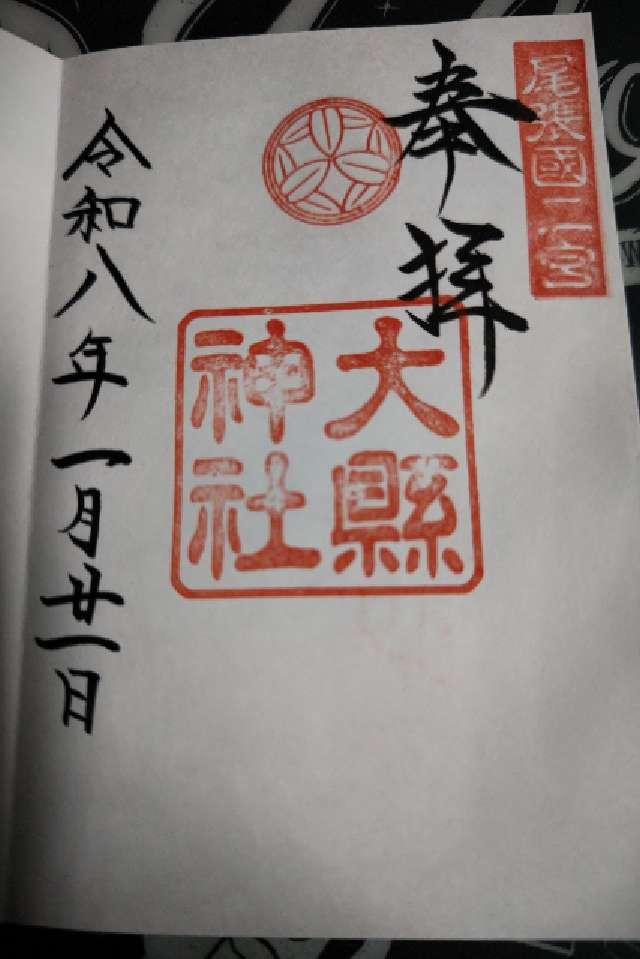 尾張國二之宮
奉拝
大縣
神社
令和八年一月廿一日